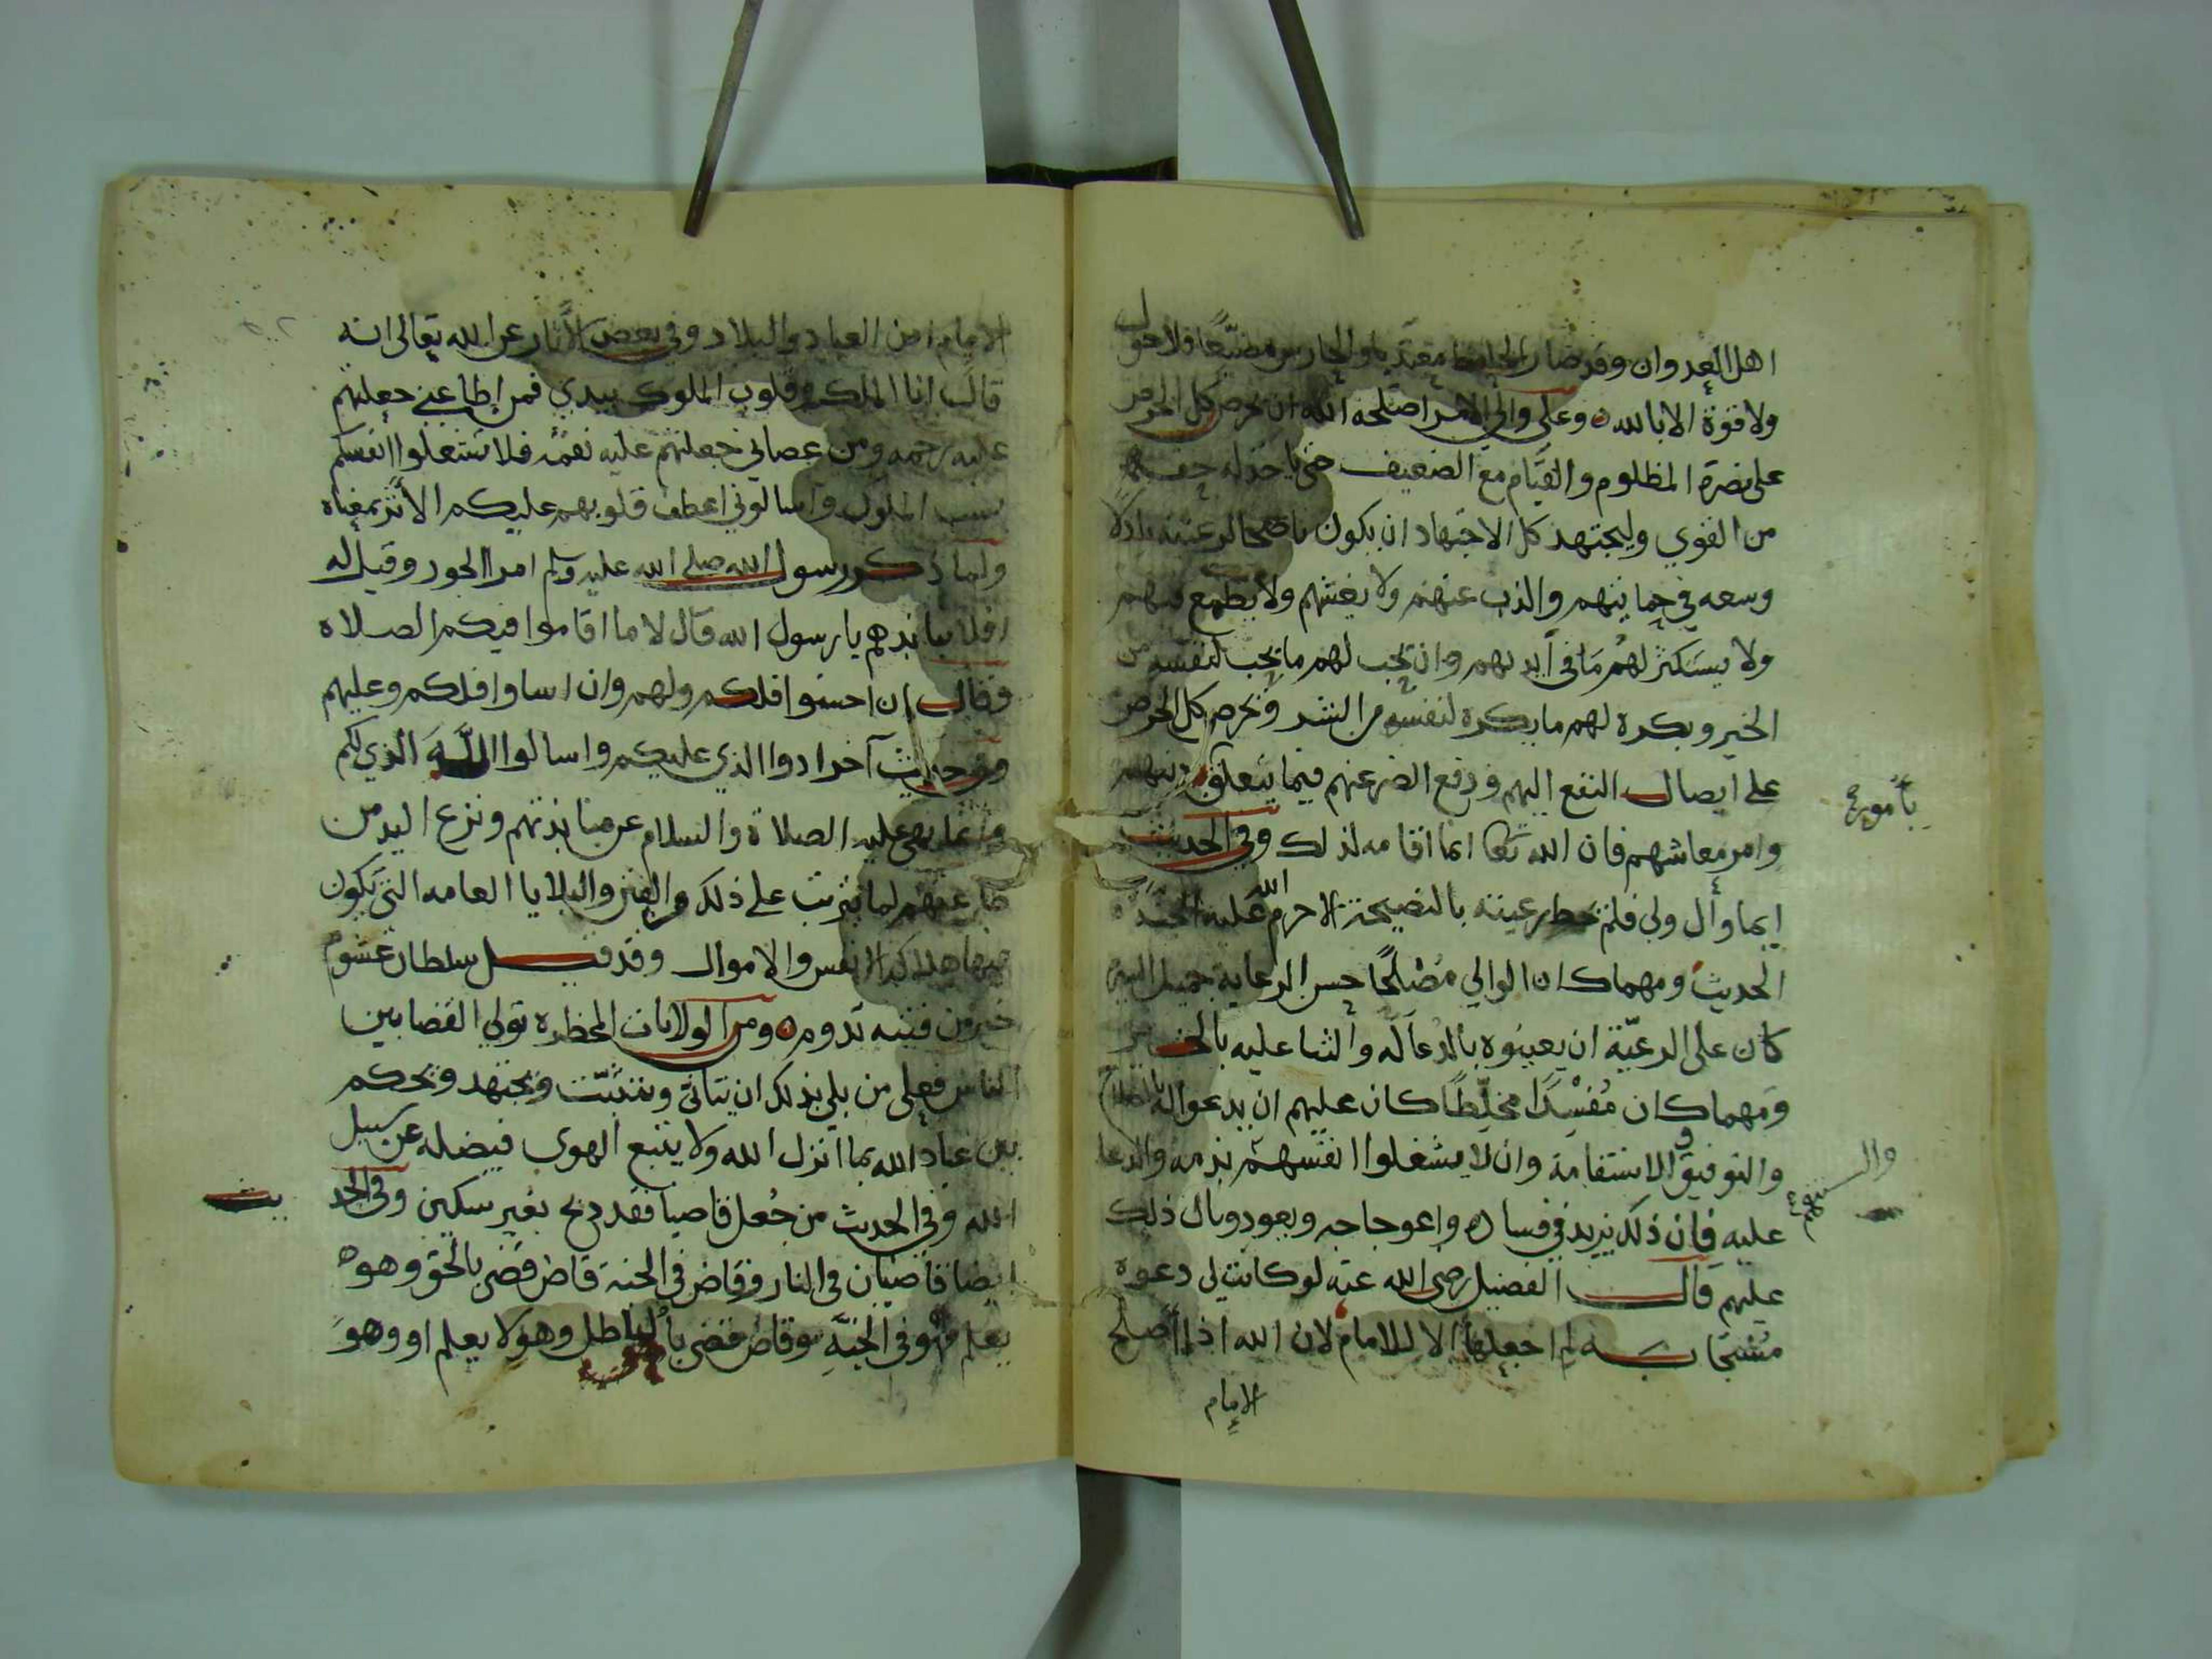 اهل العدوان وقد صار الحافظ مقتديا والحارس مضيّعا فلا حول
ولا قوة الا بالله ه وعلى والي الامر اصلحه الله ان يحرص كل الحرص
على نصرة المظلوم والقيام مع الضعيف حتى ياخذ له حقه
من القوي وليجتهد كل الاجتهاد ان يكون ناصحا لرعيته باذلا
وسعه في حمايتهم والذب عنهم ولا يغشهم ولا يطمع فيهم
ولا يستكثر لهم ما في ايديهم وان يحب لهم ما يحب لنفسه من
الخير ويكره لهم ما يكره لنفسه من الشر ويحرص كل الحرص
على ايصال النفع اليهم ودفع الضر عنهم فيما يتعلق دينهم
بامور
وامر معاشهم فان الله تعا انما اقامه لذلك وفي الحديث
ايما وال ولي فلم يحط رعيته بالنصيحة الا حرم الله عليه الجنة
الحديث ومهما كان الوالي مصلحا حسن الرعاية جميل السيرة
كان على الرعيّة ان يعينوه بالدعا له والثنا عليه بالخير
ومهما كان مفسدا مخلّطا كان عليهم ان يدعوا له بالصلاح
والتوفيق والاستقامة وان لا يشغلوا انفسهم بذمه والدعا
عليه فان ذلك يزيد في فساده واعوجاجه ويعود وبال ذلك
عليهم قال الفضيل رضي الله عنه لو كانت لي دعوة
مستجابة لم اجعلها الا للامام لان الله اذا اصلح
الامام
الامام امن العباد والبلاد وفي بعض الاثار عن الله تعالى انه
قال انا الملك وقلوب الملوك بيدي فمن اطاعني جعلتهم
عليه رحمه ومن عصاني جعلتهم عليه نقمه فلا تشتغلوا انفسكم
بسب الملوك واسالوني اعطف قلوبهم عليكم الاثر بمعناه
ولما ذكر رسول الله صلى الله عليه وسلم امرا الجور وقيل له
افلا ننابذهم يا رسول الله قال لا ما اقاموا فيكم الصلاه
وقال ان احسنوا فلكم ولهم وان اساوا فلكم وعليهم
وفي حديث آخر ادوا الذي عليكم واسالوا اللّه الذي لكم
وانما نهى عليه الصلاة والسلام عن منابذتهم ونزع اليد من
طاعتهم لما يترتب على ذلك من الفتن والبلايا العامه التي يكون
فيها هلاك الانفس والاموال وقد قيل سلطان غشوم
خير من فتنه تدوم ه ومن الولايات المخطره تولي القضا بين
الناس فعلى من بلي بذلك ان يتانى ويتثبّت ويجتهد ويحكم
بين عباد الله بما انزل الله ولا يتبع الهوى فيضله عن سبيل
الله وفي الحديث من جُعل قاضيا فقد ذبح بغير سكين وفي الحد
يث
ايضا قاضيان في النار وقاض في الجنة قاض قضى بالحق وهو
يعلم فهو في الجنّة وقاض قضى بالباطل وهو لا يعلم او وهو